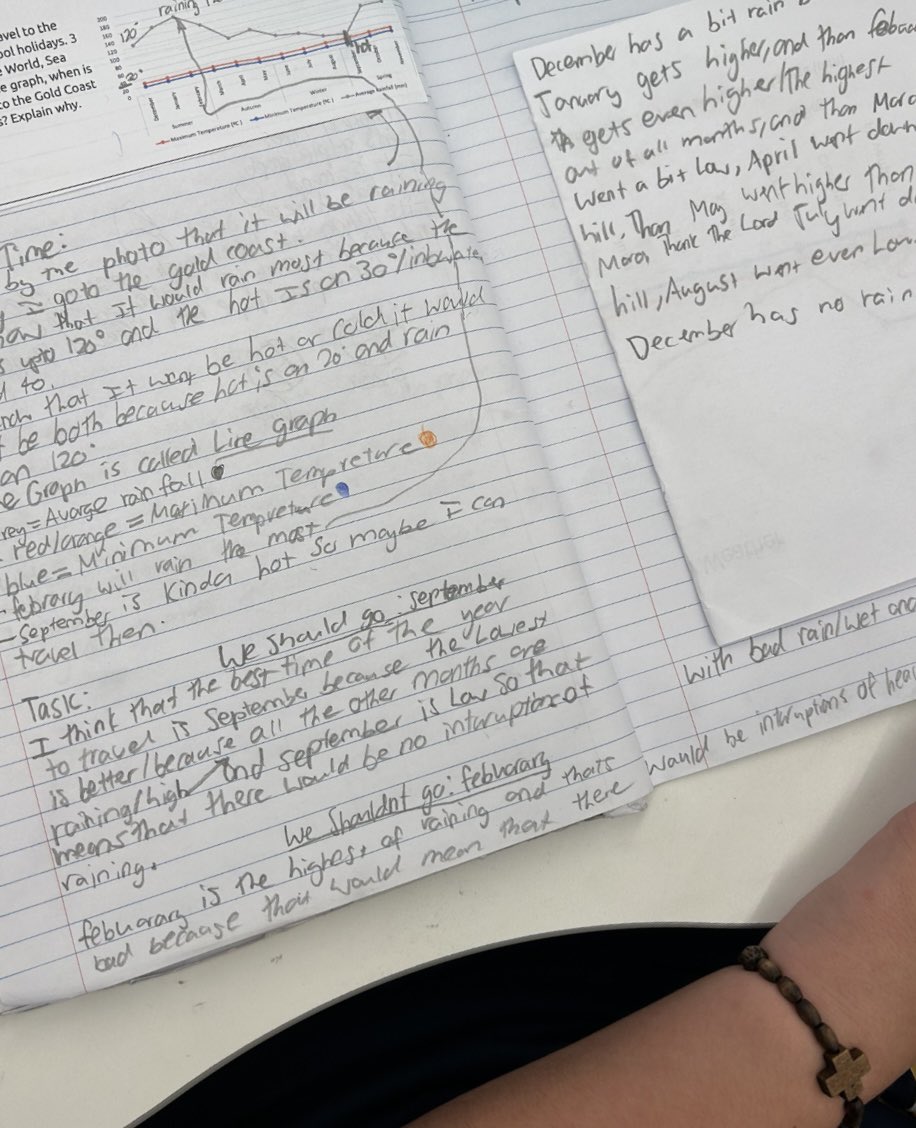 avel to the
ool holidays. 3
World, Sea
e graph, when is
to the Gold Coast
s? Explain why.
raining
120°
200
180
160
140
120
Summer
Autumn
Winter
Spring
hot
Maximum Temperature (°C)
Minimum Temperature (°C)
Average Rainfall (mm)
Time:
by the photo that it will be raining
I go to the gold coast.
that It would rain most because the
upto 120° and the hot Is on 30°/inbetwe
40.
that It wont be hot or cold it would
be both because hot is on 20° and rain
on 120°.
e Graph is called Line graph
rey = Avarge rainfall
red/orange = Maximum Tempreture
blue = Minimum Tempreture
- febrary will rain the most
- September is kinda hot so maybe I can
travel then.
We should go: september
Task:
I think that the best time of the year
to travel is September because the Lowest
is better/because all the other months are
raining/high and september is Low so that
means that there would be no intruption of
raining.
We shouldnt go: febuarary
febuarary is the highest of raining and thats
bad because that would mean that there
December has a bit rain
January gets higher, and than
gets even higher/The highest
out of all months, and than
Went a bit Low, April went down
hill, Than May went higher Than
March Thank The Lord July went
hill, August went even
December has no rain
with bad rain/wet and
would be intruptions of